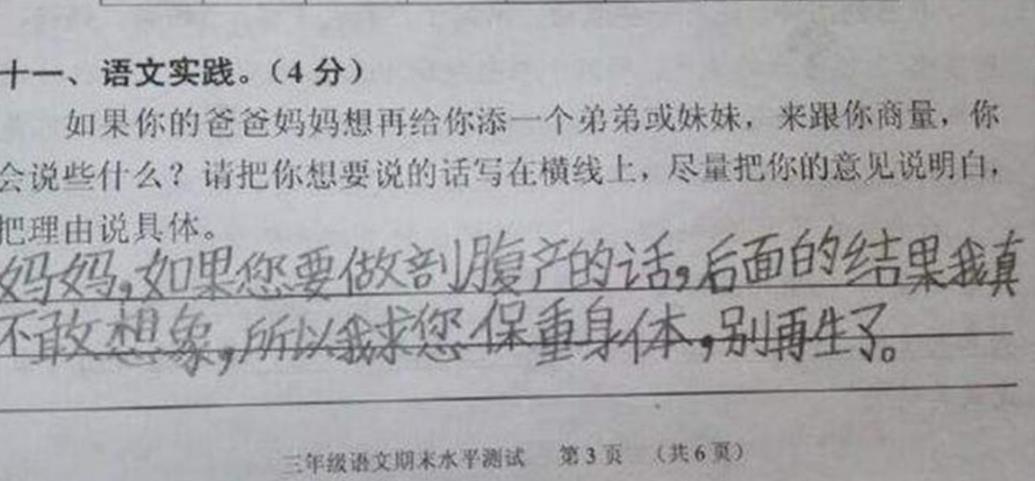 十一、语文实践。(4分)
如果你的爸爸妈妈想再给你添一个弟弟或妹妹，来跟你商量，你
会说些什么？请把你想要说的话写在横线上，尽量把你的意见说明白，
把理由说具体。
妈妈，如果您要做剖腹产的话，后面的结果我真
不敢想象，所以我求您保重身体，别再生了。
三年级语文期末水平测试 第3页 (共6页)